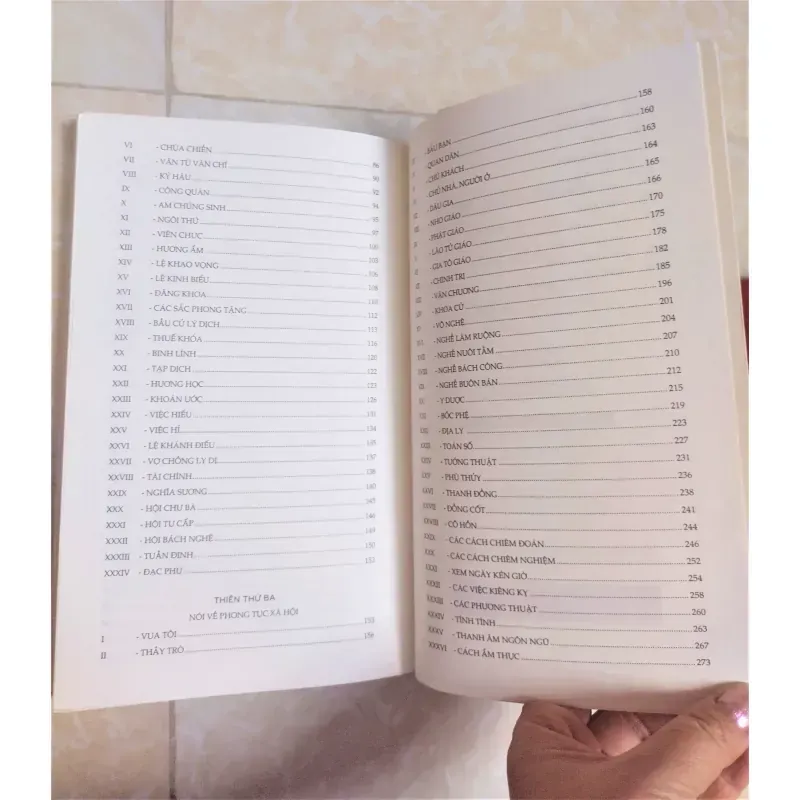 VI - CHÙA CHIỀN 88
VII - VĂN TỪ VĂN CHỈ 90
VIII - KỲ HẬU
IX - CÔNG QUÁN 92
X - AM CHÚNG SINH 94
XI - NGÔI THỨ 95
XII - VIÊN CHỨC 97
XIII - HƯƠNG ẨM 100
XIV - LỆ KHAO VỌNG
XV - LỆ KÍNH BIẾU 106
XVI - ĐĂNG KHOA 108
XVII - CÁC SẮC PHONG TẶNG 110
XVIII - BẦU CỬ LÝ DỊCH 112
XIX - THUẾ KHÓA 113
XX - BINH LÍNH 116
XXI - TẠP DỊCH 120
XXII - HƯƠNG HỌC 122
XXIII - KHOÁN ƯỚC 123
XXIV - VIỆC HIẾU 126
XXV - VIỆC HỈ 131
XXVI - LỆ KHÁNH ĐIẾU 134
XXVII - VỢ CHỒNG LY DỊ
XXVIII - TÀI CHÍNH 137
XXIX - NGHĨA SƯƠNG 138
XXX - HỘI CHƯ BÀ 140
XXXI - HỘI TƯ CẤP
XXXII - HỘI BÁCH NGHỆ 146
XXXIII - TUẦN ĐINH 149
XXXIV - ĐẠC PHU 150
THIÊN THỨ BA
NÓI VỀ PHONG TỤC XÃ HỘI
I - VUA TÔI 153
II - THẦY TRÒ 156
BẦU BẠN 158
- QUAN DÂN 160
- CHỦ KHÁCH 163
- CHỦ NHÀ, NGƯỜI Ở 164
- DÂU GIA 165
- NHO GIÁO 166
- PHẬT GIÁO 170
- LÃO TỬ GIÁO 175
- GIA TÔ GIÁO 178
- CHÍNH TRỊ 182
- VĂN CHƯƠNG 185
- KHOA CỬ 196
- VÕ NGHỆ 201
- NGHỀ LÀM RUỘNG 204
- NGHỀ NUÔI TẰM 207
- NGHỀ BÁCH CÔNG 210
- NGHỀ BUÔN BÁN 212
- Y DƯỢC 215
- BỐC PHỆ 219
- ĐỊA LÝ 223
- TOÁN SỐ 227
- TƯỚNG THUẬT 231
- PHÙ THỦY 236
XXVI - THANH ĐỒNG 238
XXVII - ĐỒNG CỐT 241
XXVIII - CÔ HỒN 244
XXIX - CÁC CÁCH CHIÊM ĐOÁN 246
XXX - CÁC CÁCH CHIÊM NGHIỆM 252
XXXI - XEM NGÀY KÉN GIỜ 254
XXXII - CÁC VIỆC KIÊNG KỴ 258
XXXIII - CÁC PHƯƠNG THUẬT 260
XXXIV - TÍNH TÌNH 263
XXXV - THANH ÂM NGÔN NGỮ 267
XXXVI - CÁCH ẨM THỰC 273